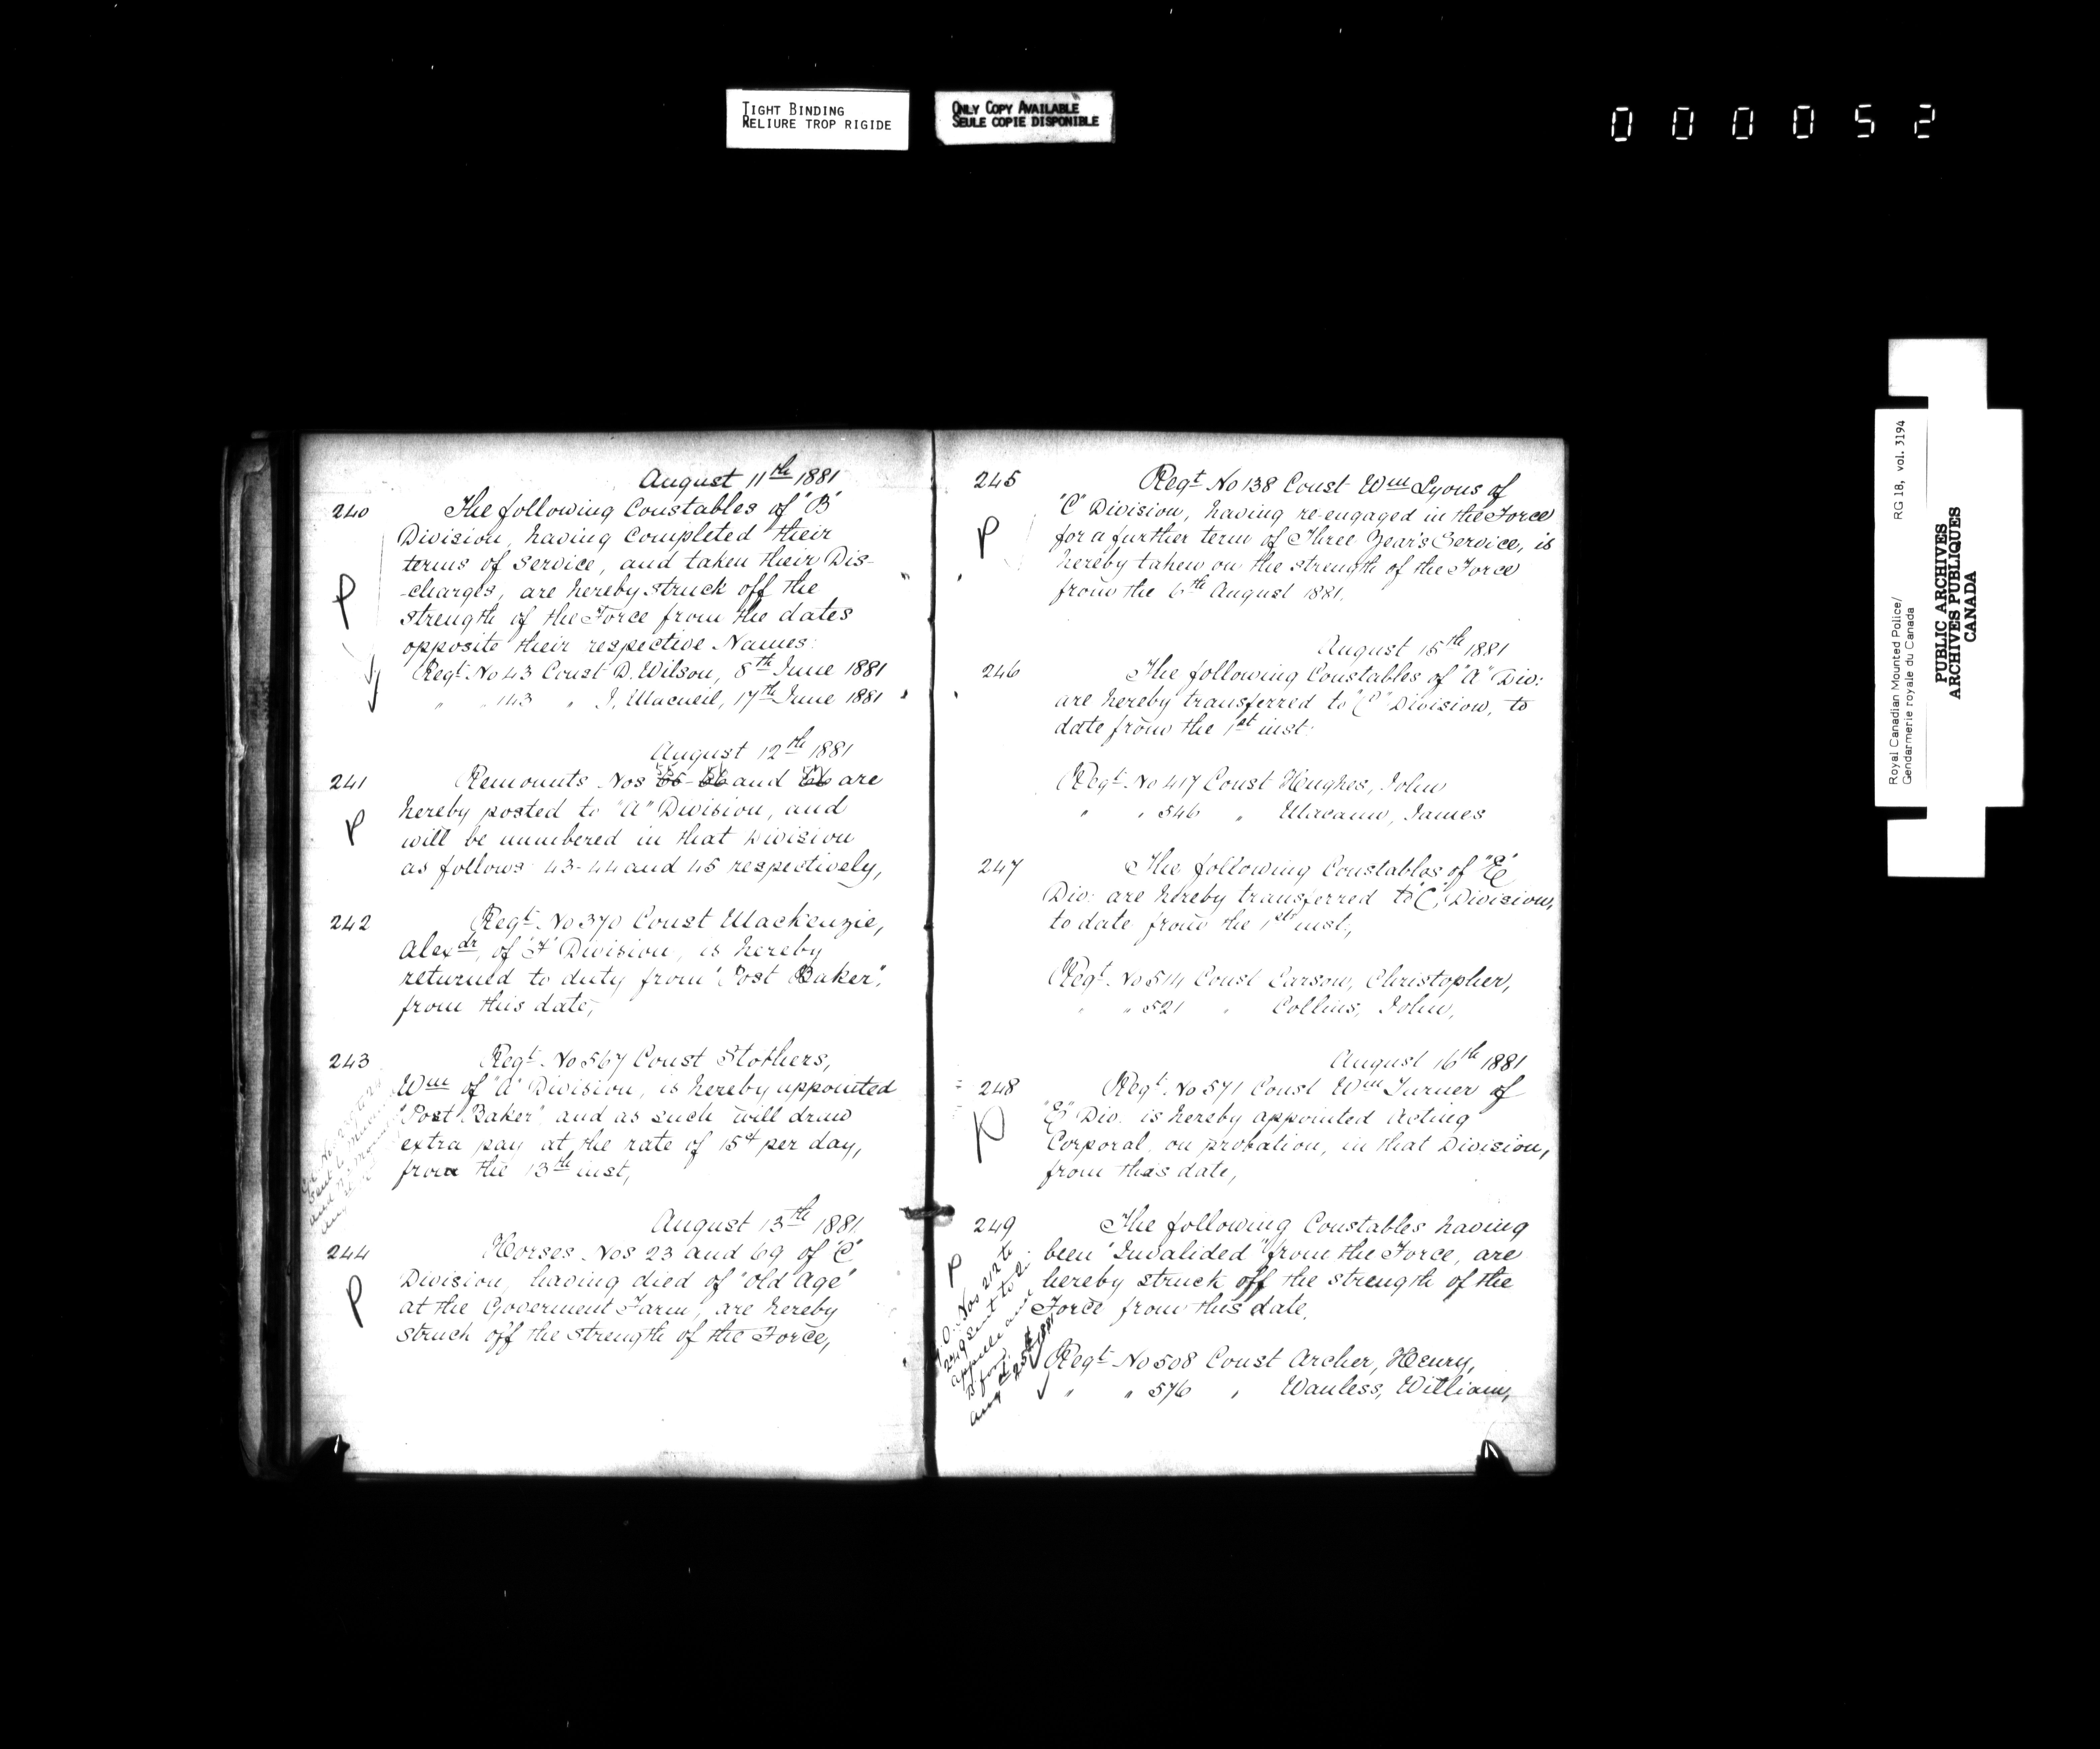 TIGHT BINDING
RELIURE TROP RIGIDE
ONLY COPY AVAILABLE
SEULE COPIE DISPONIBLE
000052
August 11th 1881
240 The following Constables of "B"
Division, having Completed their
terms of Service, and taken their Dis-
-charges, are hereby struck off the
strength of the Force from the dates
opposite their respective Names:
Regt. No 43 Const D. Wilson, 8th June 1881
" " 143 " J. Macneil, 17th June 1881
August 12th 1881
241 Remounts Nos and are
hereby posted to "A" Division, and
will be numbered in that Division
as follows 43-44 and 45 respectively,
242 Regt. No 370 Const Mackenzie,
Alexdr, of "F" Division, is hereby
returned to duty from "Post Baker",
from this date,
243 Regt. No 567 Const Stothers,
Wm of "A" Division, is hereby appointed
"Post Baker" and as such will draw
extra pay at the rate of 15ct per day,
from the 13th inst,
August 13th 1881.
244 Horses Nos 23 and 69 of "C"
Division, having died of "old age"
at the Goverment Farm, are hereby
struck off the strength of the Force,
P
P
P
245 Regt. No 138 Const Wm Lyons of
"C" Division, having re-engaged in the Force
for a further term of Three Year's Service, is
hereby taken on the strength of the Force
from the 6th August 1881.
August 15th 1881
246 The following Constables of "A" Div:
are hereby transferred to "C" Division, to
date from the 1st inst:
Regt. No 417 Const Hughes, John
" " 546 " Macann, James
247 The following Constables of "E"
Div: are hereby transferred to "C", Division,
to date from the 1st inst.,
Regt. No 514 Const Carson, Christopher,
" " 521 " Collins, John,
August 16th 1881
248 Regt. No 571 Const Wm Turner of
"E" Div. is hereby appointed Acting
Corporal, on probation, in that Division,
from this date,
249 The following Constables having
been "Invalided" from the Force, are
hereby struck off the strength of the
Force from this date.
Regt. No 508 Const Archer, Henry,
" " 576 " Wanless, William,
P
P
P
G.O. Nos 212 to
249 sent to Qu
appelle and
Aug 25th 1881
Royal Canadian Mounted Police/
Gendarmerie royale du Canada
RG 18, vol. 3194
PUBLIC ARCHIVES
ARCHIVES PUBLIQUES
CANADA